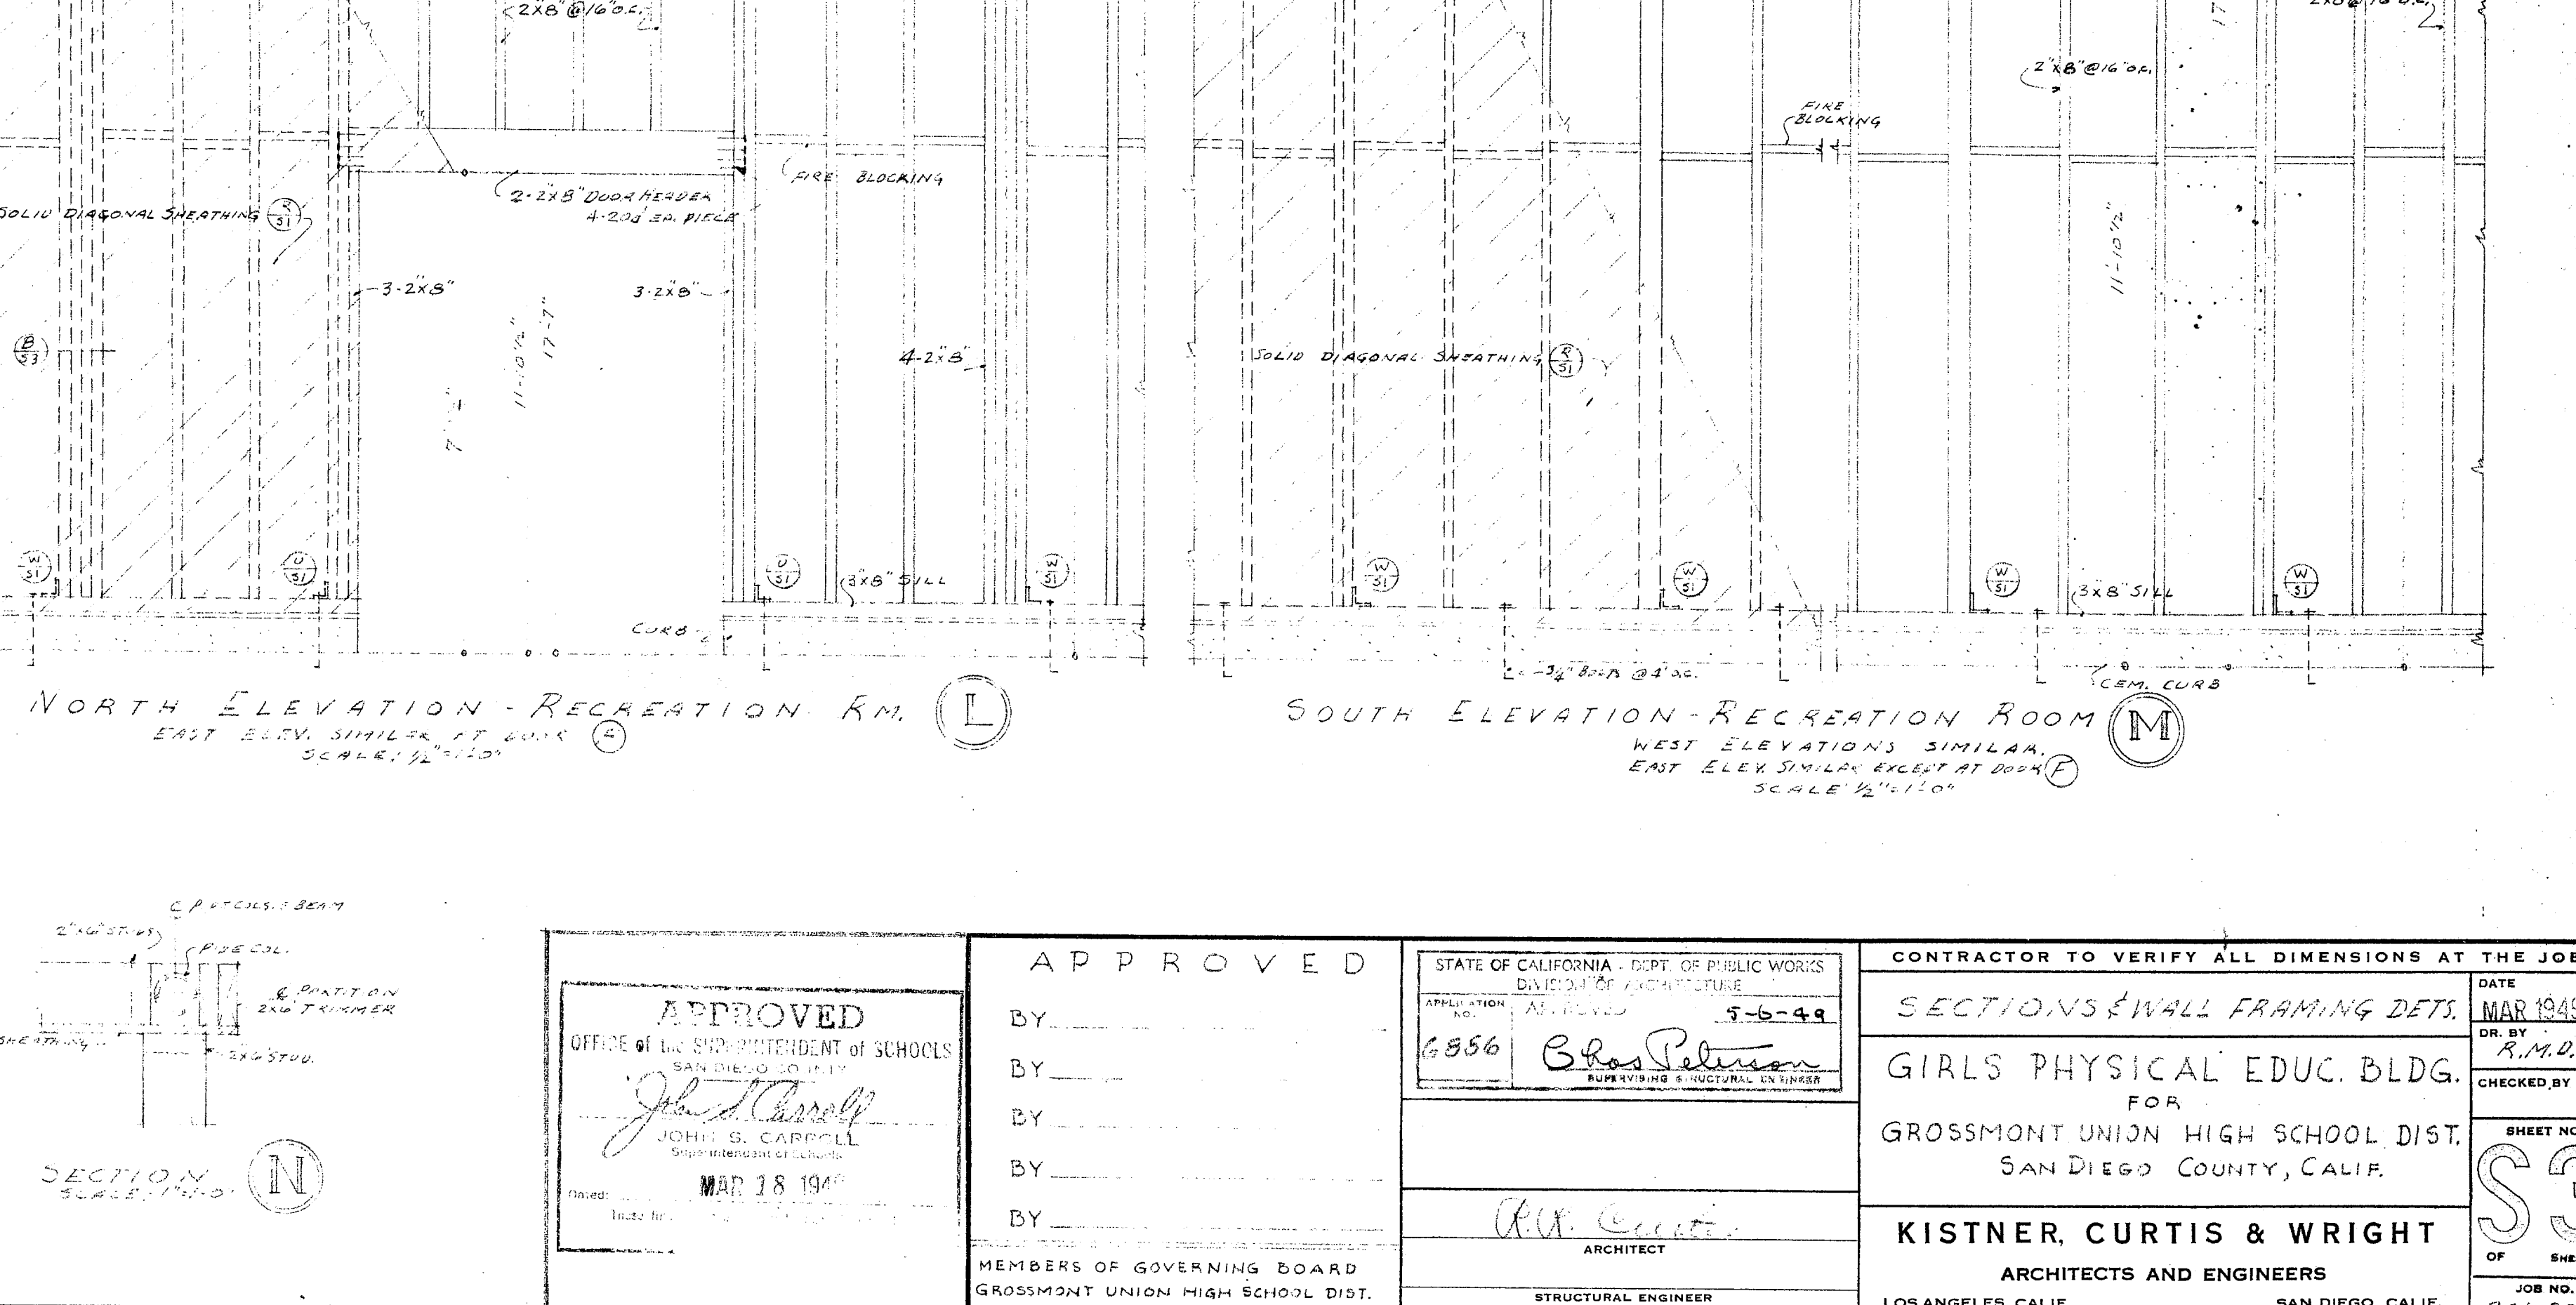 2"X8"@16"O.C.
FIRE BLOCKING
2-2X8" DOOR HEADER
4-20d EA. PIECE
SOLID DIAGONAL SHEATHING R S1
3-2"X8"
3-2"X8"
11'-10½"
17'-7"
B S3
4-2"X8"
W S1
U S1
U S1
3"X8" SILL
W S1
CURB
NORTH ELEVATION - RECREATION RM. L
EAST ELEV. SIMILAR AT DOOR
SCALE: ½"=1'-0"
2"X8"@16"O.C.
2"X8"@16"O.C.
FIRE
BLOCKING
11'-10½"
SOLID DIAGONAL SHEATHING R S1
W S1
W S1
W S1
3"X8" SILL
W S1
¾" BOLTS @4' O.C.
CEM. CURB
SOUTH ELEVATION - RECREATION ROOM M
WEST ELEVATIONS SIMILAR.
EAST ELEV. SIMILAR EXCEPT AT DOOR F
SCALE ½"=1'-0"
BEAM
2"X6" STUDS
PIPE COL.
PARTITION
2X6 TRIMMER
SHEATHING
2X6 STUD.
SECTION N
SCALE: 1"=1'-0"
APPROVED
OFFICE of the SUPERINTENDENT of SCHOOLS
SAN DIEGO COUNTY
John S. Carroll
JOHN S. CARROLL
Superintendent of Schools
Dated: MAR 18 194
APPROVED
BY
BY
BY
BY
BY
MEMBERS OF GOVERNING BOARD
GROSSMONT UNION HIGH SCHOOL DIST.
STATE OF CALIFORNIA - DEPT. OF PUBLIC WORKS
DIVISION OF ARCHITECTURE
APPLICATION NO. APPROVED 5-6-49
6856 Chas Peterson
SUPERVISING STRUCTURAL ENGINEER
ARCHITECT
STRUCTURAL ENGINEER
CONTRACTOR TO VERIFY ALL DIMENSIONS AT THE JOB
SECTIONS & WALL FRAMING DETS.
GIRLS PHYSICAL EDUC. BLDG.
FOR
GROSSMONT UNION HIGH SCHOOL DIST.
SAN DIEGO COUNTY, CALIF.
KISTNER, CURTIS & WRIGHT
ARCHITECTS AND ENGINEERS
LOS ANGELES, CALIF. SAN DIEGO, CALIF.
DATE
MAR 1949
DR. BY
R.M.D.
CHECKED BY
SHEET NO
S3
OF SHE
JOB NO.